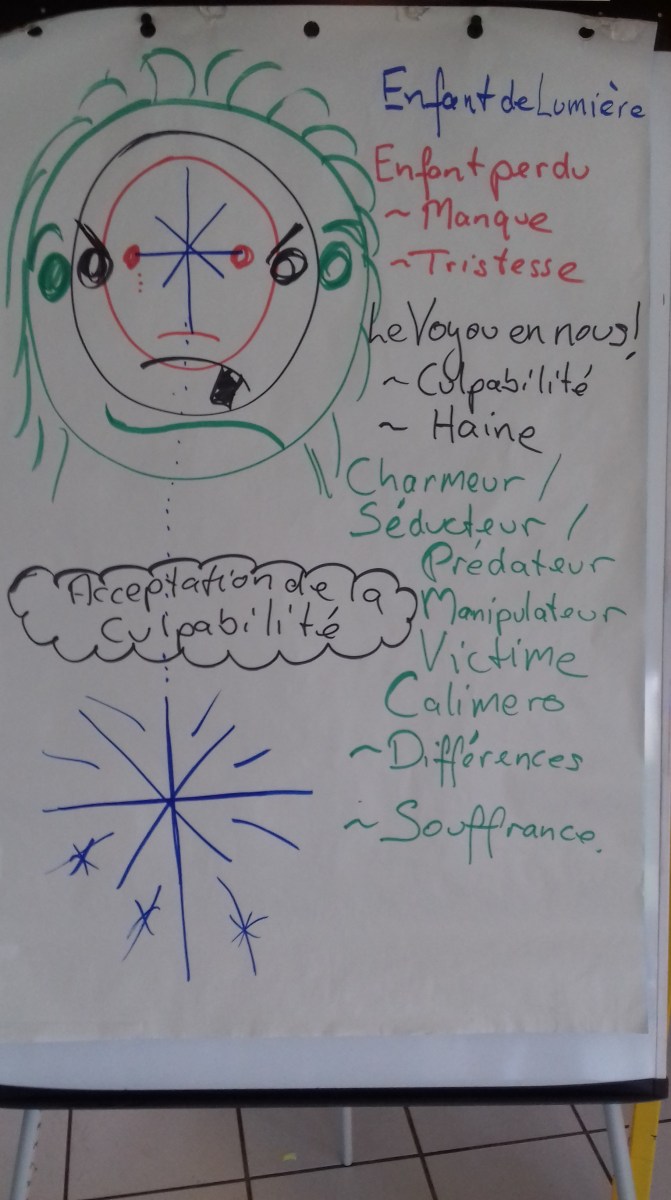 Enfant de Lumière
Enfant perdu
~ Manque
~ Tristesse
Le Voyou en nous!
~ Culpabilité
~ Haine
Charmeur /
Séducteur /
Prédateur
Manipulateur
Victime
Calimero
~ Différences
~ Souffrance.
Acceptation de la
Culpabilité